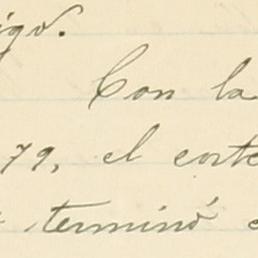 igo.
Con la
79, el corte
terminó